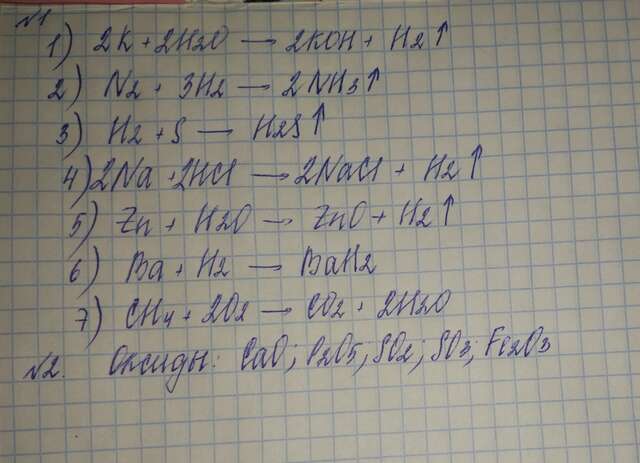 №1
1) 2K + 2H2O → 2KOH + H2↑
2) N2 + 3H2 → 2NH3↑
3) H2 + S → H2S↑
4) 2Na + 2HCl → 2NaCl + H2↑
5) Zn + H2O → ZnO + H2↑
6) Ba + H2 → BaH2
7) CH4 + 2O2 → CO2 + 2H2O
№2. Оксиды: CaO; P2O5; SO2; SO3; Fe2O3